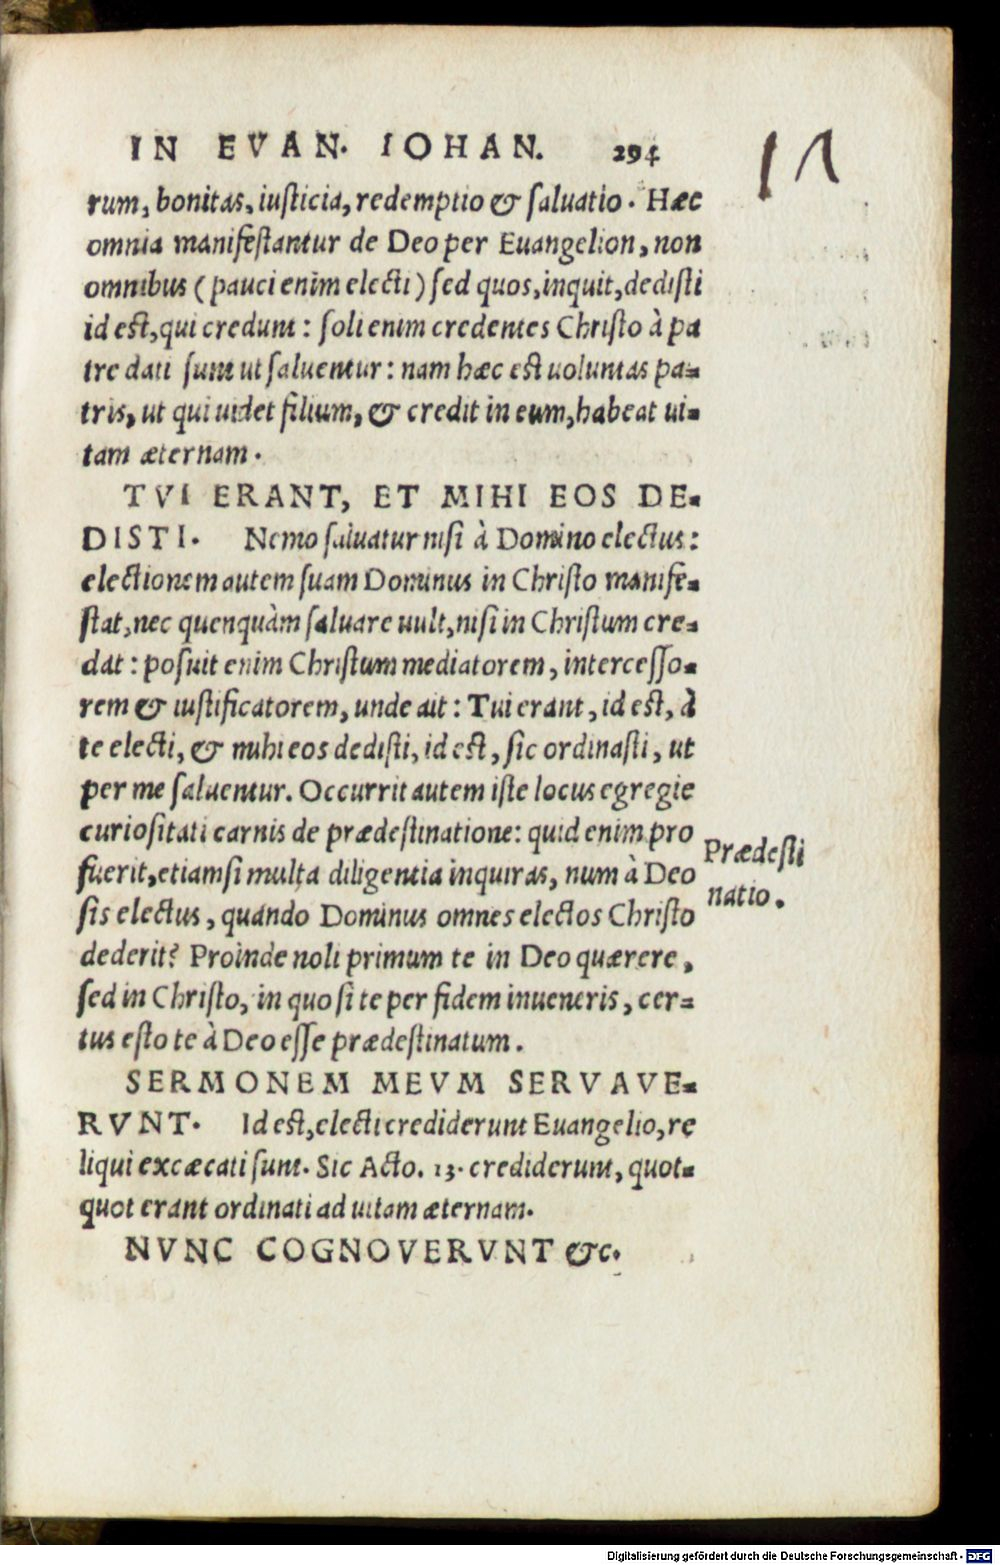 IN EVAN. IOHAN. 294
rum, bonitas, iusticia, redemptio & saluatio. Hæc
omnia manifestantur de Deo per Euangelion, non
omnibus (pauci enim electi) sed quos, inquit, dedisti
id est, qui credunt: soli enim credentes Christo à pa
tre dati sunt ut saluentur: nam hæc est uoluntas pa-
tris, ut qui uidet filium, & credit in eum, habeat ui-
tam æternam.
TVI ERANT, ET MIHI EOS DE-
DISTI. Nemo saluatur nisi à Domino electus:
electionem autem suam Dominus in Christo manife-
stat, nec quenquàm saluare uult, nisi in Christum cre-
dat: posuit enim Christum mediatorem, intercesso-
rem & iustificatorem, unde ait: Tui erant, id est, à
te electi, & mihi eos dedisti, id est, sic ordinasti, ut
per me saluentur. Occurrit autem iste locus egregie
curiositati carnis de prædestinatione: quid enim pro
fuerit, etiamsi multa diligentia inquiras, num à Deo
sis electus, quando Dominus omnes electos Christo
dederit? Proinde noli primum te in Deo quærere,
sed in Christo, in quo si te per fidem inueneris, cer-
tus esto te à Deo esse prædestinatum.
Prædesti
natio.
SERMONEM MEVM SERVAVE-
RVNT. Id est, electi crediderunt Euangelio, re
liqui excæcati sunt. Sic Acto. 13. crediderunt, quot-
quot erant ordinati ad uitam æternam.
NVNC COGNOVERVNT &c.
Digitalisierung gefördert durch die Deutsche Forschungsgemeinschaft - DFG